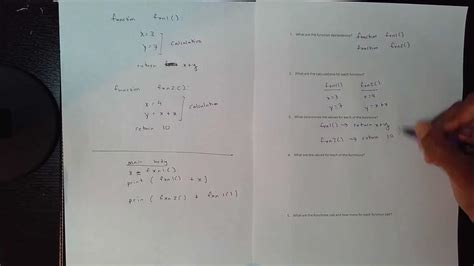 function fxn1()
x = 3
y = 7
calculation
return x+y
function fxn2()
x = 4
y = x + x
calculation
return 10
main body
x = fxn1()
print ( fxn1() + x )
prin ( fxn2() + fxn1() )
1. What are the function declarations? function fxn1()
function fxn2()
2. What are the calculations for each function?
fxn1() fxn2()
x=3 x=4
y=7 y=x+x
3. What are the return values for each of the functions?
fxn1() → return x+y
fxn2() → return 10
4. What are the values for each of the functions?
5. What are the functions calls and how many for each function call?